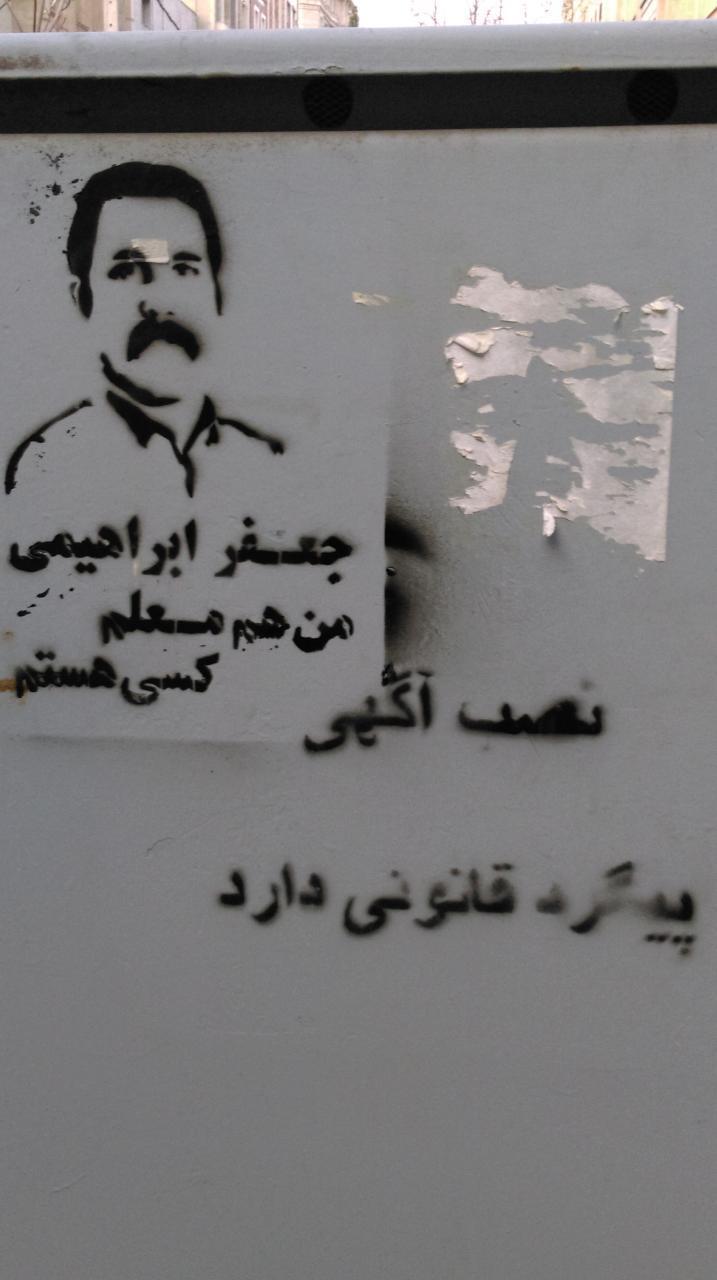 جعفر ابراهیمی
من هم معلم
کسی هستم
نصب آگهی
پیگرد قانونی دارد